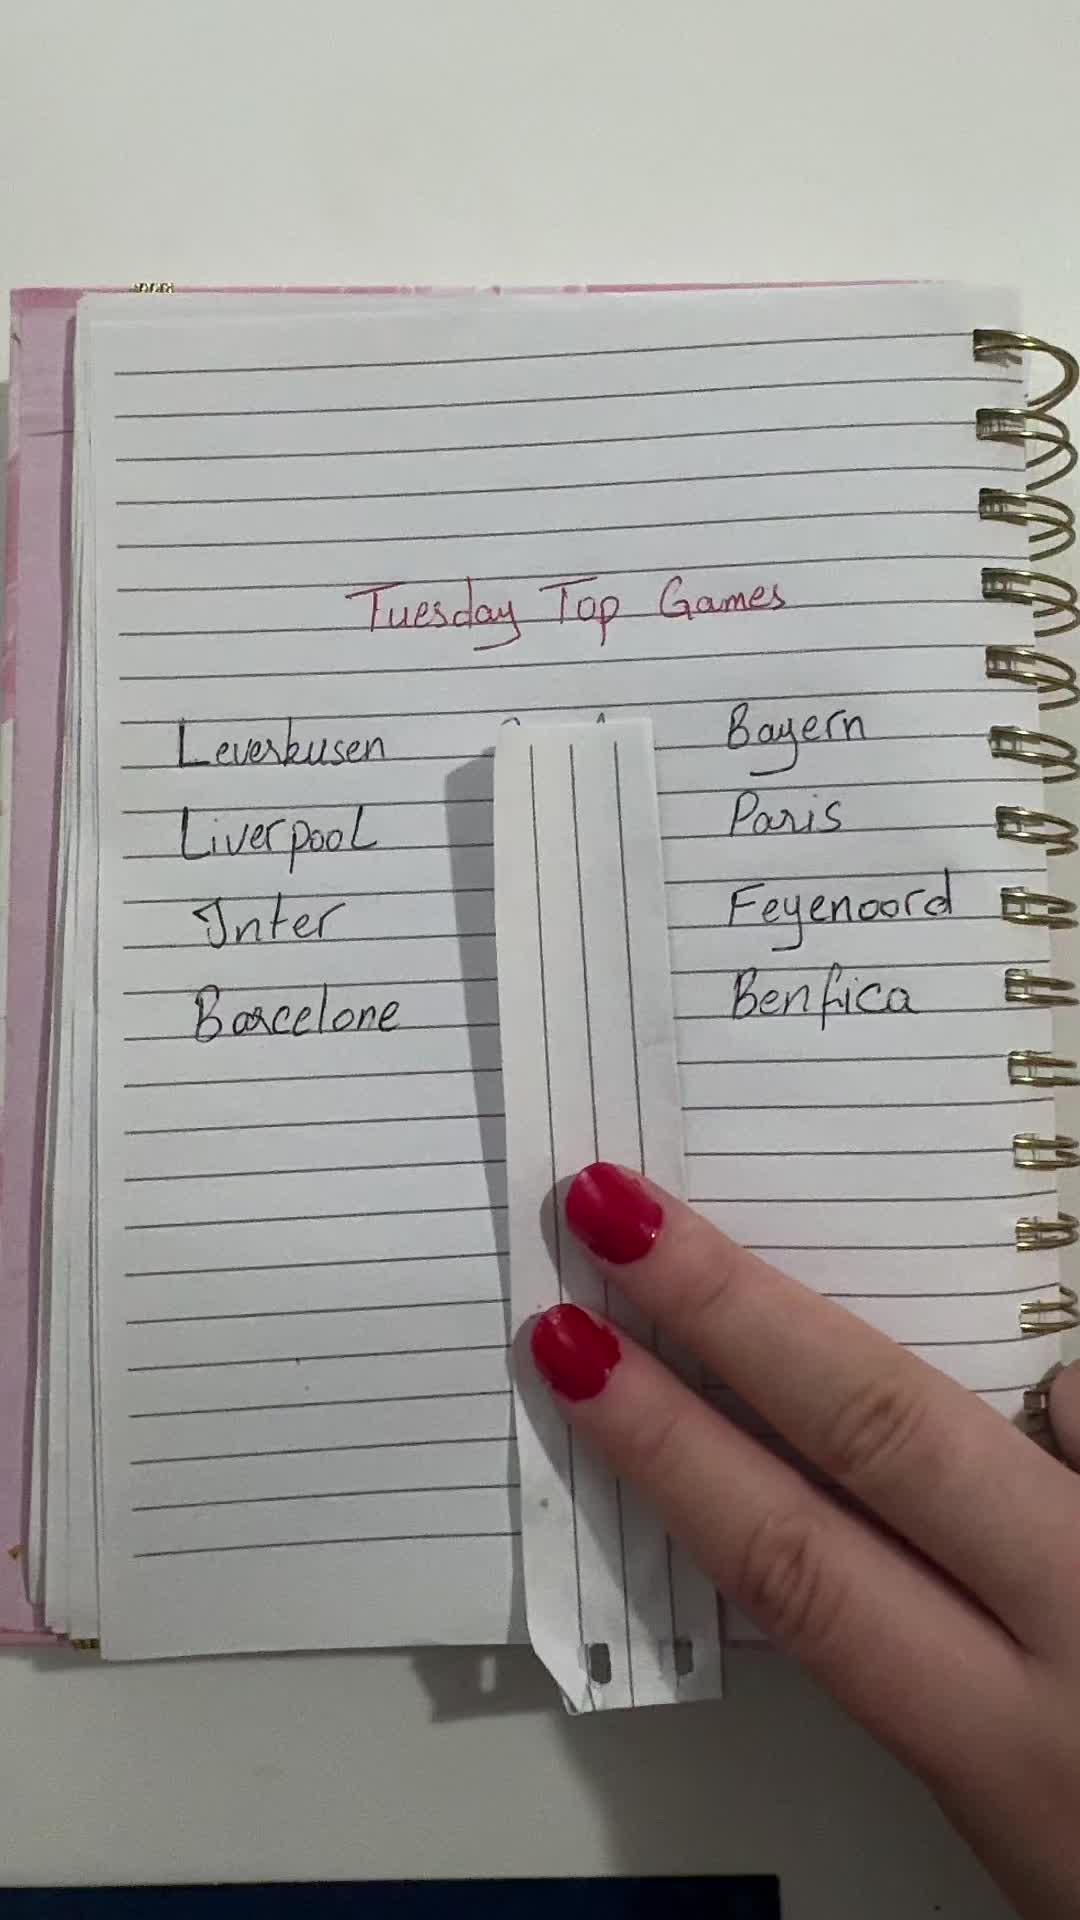 Tuesday Top Games
Leverkusen Bayern
Liverpool Paris
Inter Feyenoord
Barcelone Benfica